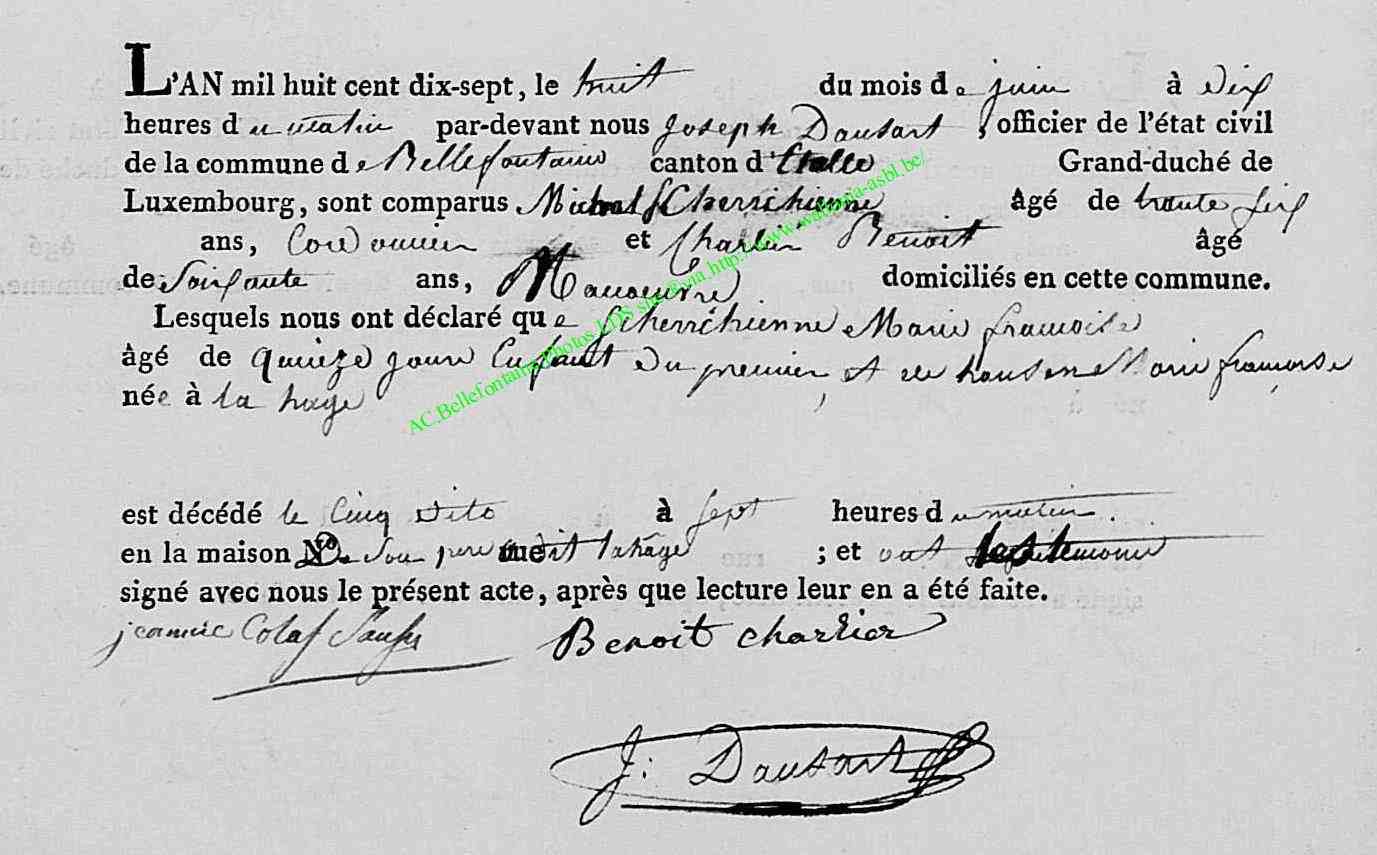 L'AN mil huit cent dix-sept, le huit du mois de juin à dix
heures du matin par-devant nous Joseph Dausart officier de l'état civil
de la commune de Bellefontaine canton d'Etalle Grand-duché de
Luxembourg, sont comparus Michel Scherrchienne âgé de trente six
ans, Cordonnier et Charlier Benoit âgé
de Soixante ans, Manoeuvre domiciliés en cette commune.
Lesquels nous ont déclaré que Scherrchienne Marie françoise
âgé de quinze jours Enfant du premier et de Marie françoise
née à la hage
est décédé le Cinq dito à sept heures du matin.
en la maison de son pere dit lahage ; et ont
signé avec nous le présent acte, après que lecture leur en a été faite.
Benoit Charlier
J: Dausart
AC.Bellefontaine Photos LDS site via http://www.wallonia-asbl.be/